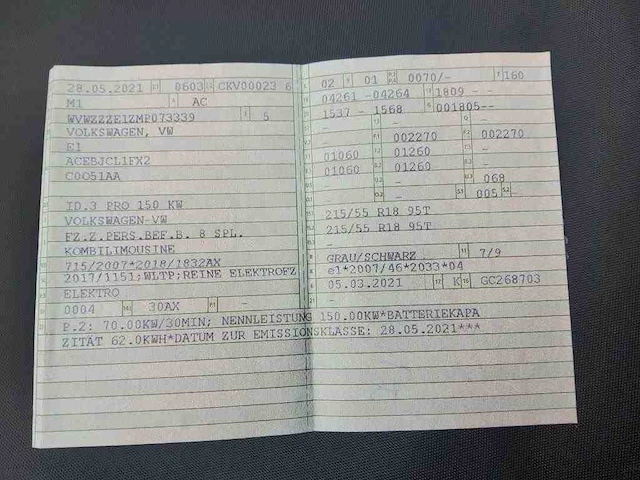 28.05.2021 0603 CKV00023 6
M1 AC
WVWZZZE1ZMP073339 5
VOLKSWAGEN, VW
E1
ACEBJCL1FX2
C0O51AA
ID.3 PRO 150 KW
VOLKSWAGEN-VW
FZ.Z.PERS.BEF.B. 8 SPL.
KOMBILIMOUSINE
715/2007*2018/1832AX
2017/1151;WLTP;REINE ELEKTROFZ
ELEKTRO
0004 30AX -
02 01 0070/- 160
04261 -04264 1809 -
1537 - 1568 001805--
- -
- 002270 002270
01060 01260 -
01060 01260 -
- - 068
- - 005 -
215/55 R18 95T
215/55 R18 95T
-
GRAU/SCHWARZ 7/9
e1*2007/46*2033*04
05.03.2021 K GC268703
P.2: 70.00KW/30MIN; NENNLEISTUNG 150.00KW*BATTERIEKAPA
ZITÄT 62.0KWH*DATUM ZUR EMISSIONSKLASSE: 28.05.2021***